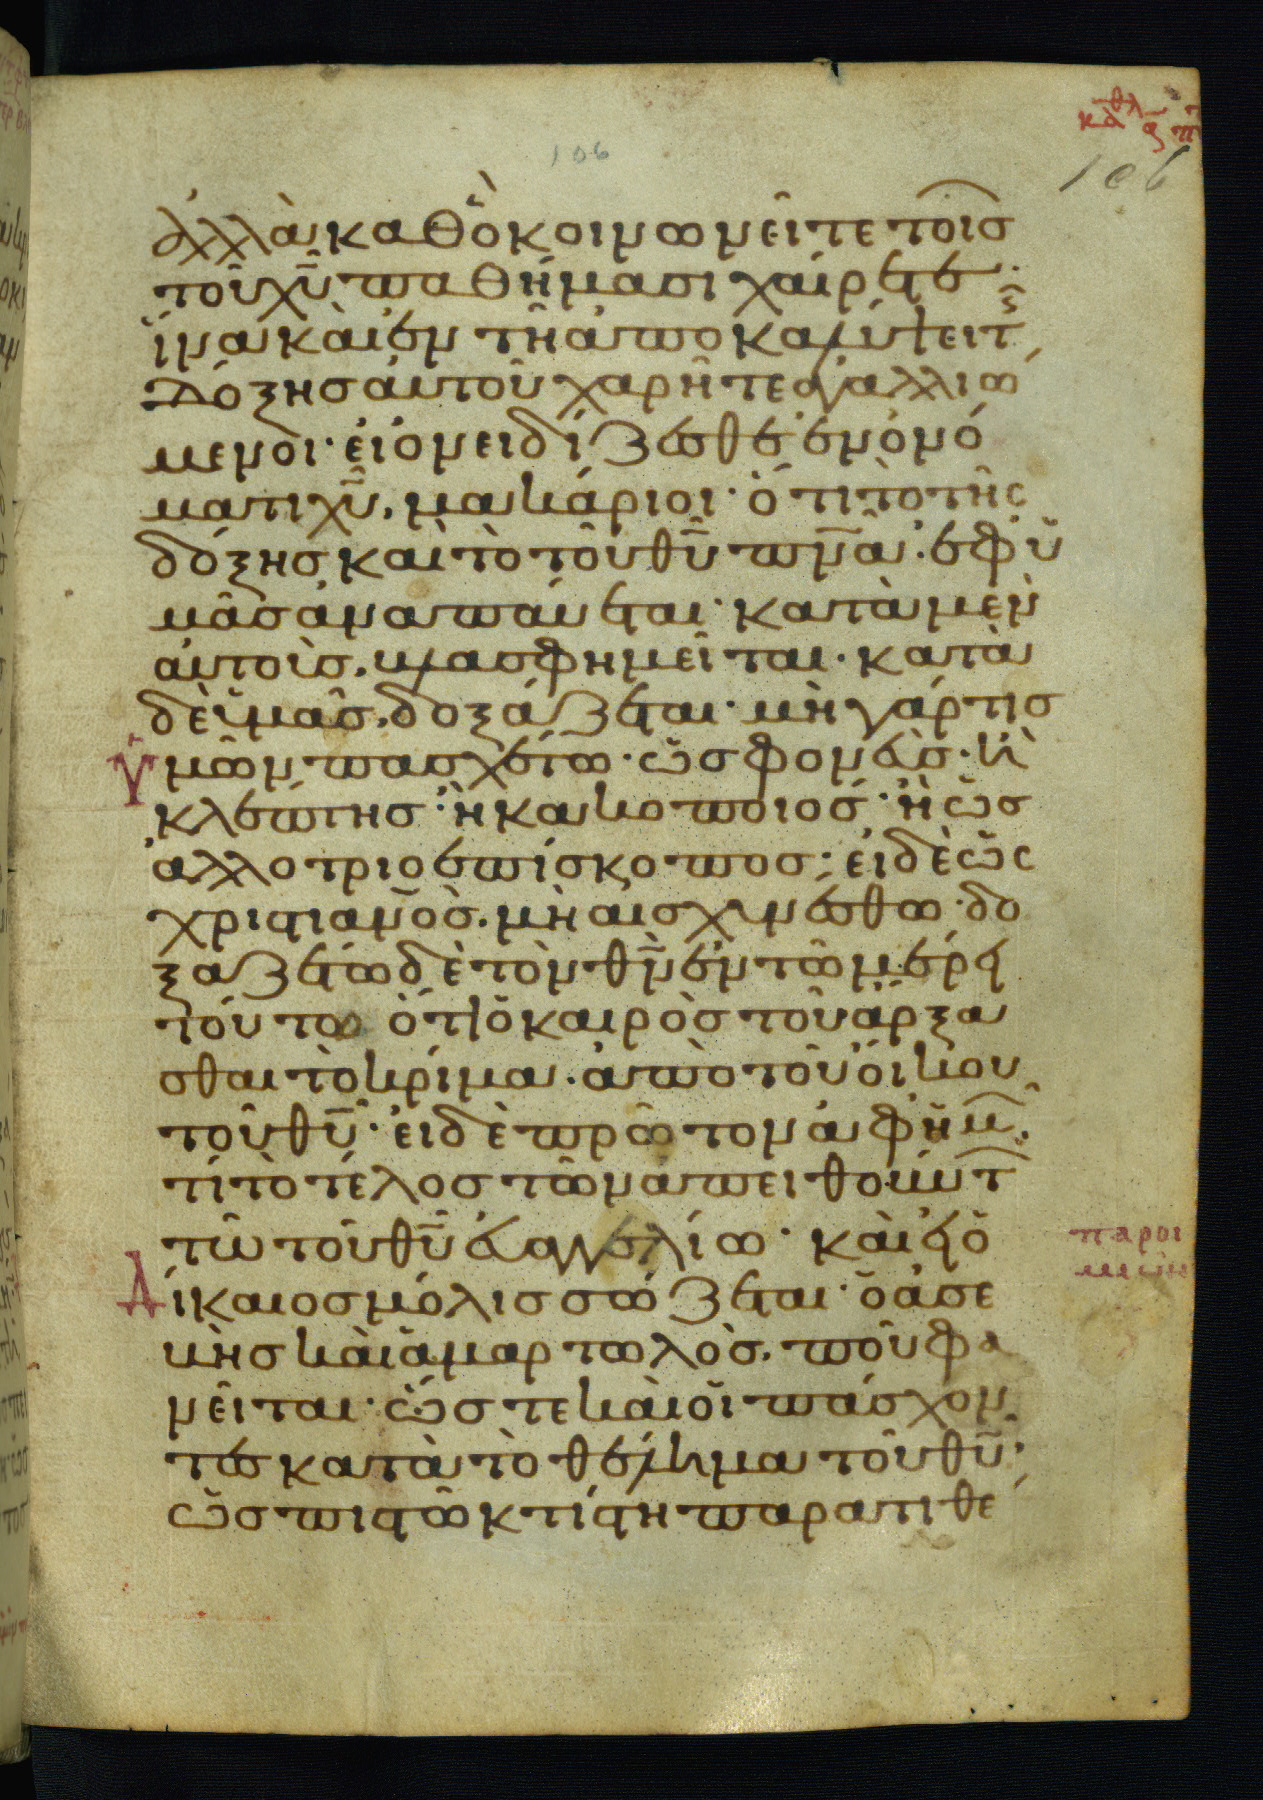 106
106
ἀλλὰ καθὸ κοινωνεῖτε τοῖσ
τοῦ χ̅υ̅ παθήμασι χαίρετε·
ἵνα καὶ ἐν τῆ ἀποκαλύψει τ
δόξησ ἀυτοῦ χαρῆτε ἀγαλλιώ
μενοι· ἐι ὀνειδίζεσθε ἐν ὀνό
ματι χ̅υ̅, μακάριοι· ὅτι τὸ τῆς
δόξησ καὶ τὸ τοῦ θ̅υ̅ π̅ν̅α̅· ἐφ ὑ
μᾶσ ἀναπάυεται· κατὰ μὲν
αὐτοὺσ, βλασφημεῖται· κατὰ
δὲ ὑμᾶσ, δοξάζεται· μὴ γάρ τισ
ὑμῶν πασχέτω· ὡσ φονεὺσ· ἢ
κλέπτησ· ἢ κακοποιόσ· ἢ ὡσ
ἀλλοτριοεπίσκοποσ· ἐι δὲ ὡς
χριστιανὸσ, μὴ αισχυνέσθω· δο
ξαζέτω δὲ τὸν θ̅ν̅ ἐν τῶ μέρει
τούτω ὅτι ὁ καιρὸσ τοῦ ἄρξα
σθαι τὸ κρίμα· ἀπὸ τοῦ οἴκου
τοῦ θ̅υ̅· ἐι δὲ πρῶτον ἀφ ἡμ
τί τὸ τέλοσ τῶν ἀπειθούντ
τῶ τοῦ θ̅υ̅ ἐυαγγελίω· καὶ εἰ ὁ
Δίκαιοσ μόλισ σώζεται· ὁ ἀσε
βὴσ καὶ ἁμαρτωλὸσ, ποῦ φα
νεῖται· ὥστε καὶ οἱ πάσχον
τεσ κατὰ τὸ θέλημα τοῦ θ̅υ̅·
ὡσ πιστῶ κτίστη παρατιθέ
παροι
μιων